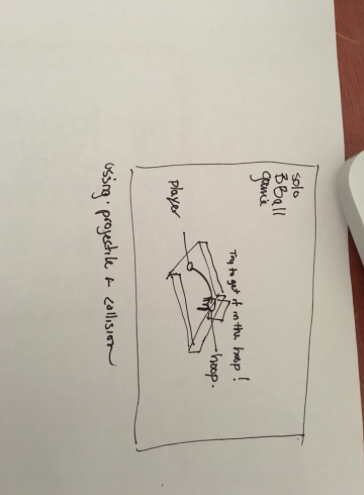 solo
BBall
game
Try to get it in the hoop!
hoop.
Player
using projectile & collision